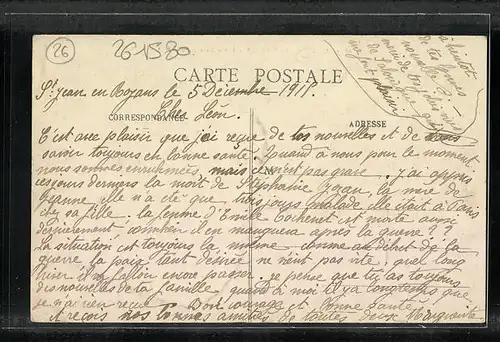 26
26-1580
CARTE POSTALE
St Jean en Royans le 5 Décembre 1915.
CORRESPONDANCE
Cher Léon.
ADRESSE
C'est avec plaisir que j'ai reçue de tes nouvelles et de vous
savoir toujours en bonne santé. Quand à nous pour le moment
nous sommes enrhumées, mais ce n'est pas grave. J'ai appris
ces jours derniers la mort de Stéphanie la mère de
Jeanne elle n'a été que trois jours malade elle était à Paris
chez sa fille. la femme d'Emile Cochenet est morte aussi
dernièrement, combien il en manquera après la guerre ??
La situation est toujours la même comme au début de la
guerre la paix tant désirée ne vient pas vite, quel long
hiver il va falloir encore passer. je pense que tu as toujours
des nouvelles de ta famille quand à moi il y a longtemps que
je n'ai rien reçue. Bon courage et bonne santé.
reçois nos bonnes amitiés de toutes deux Marguerite
à bientôt
de tes bonnes
nouvelles